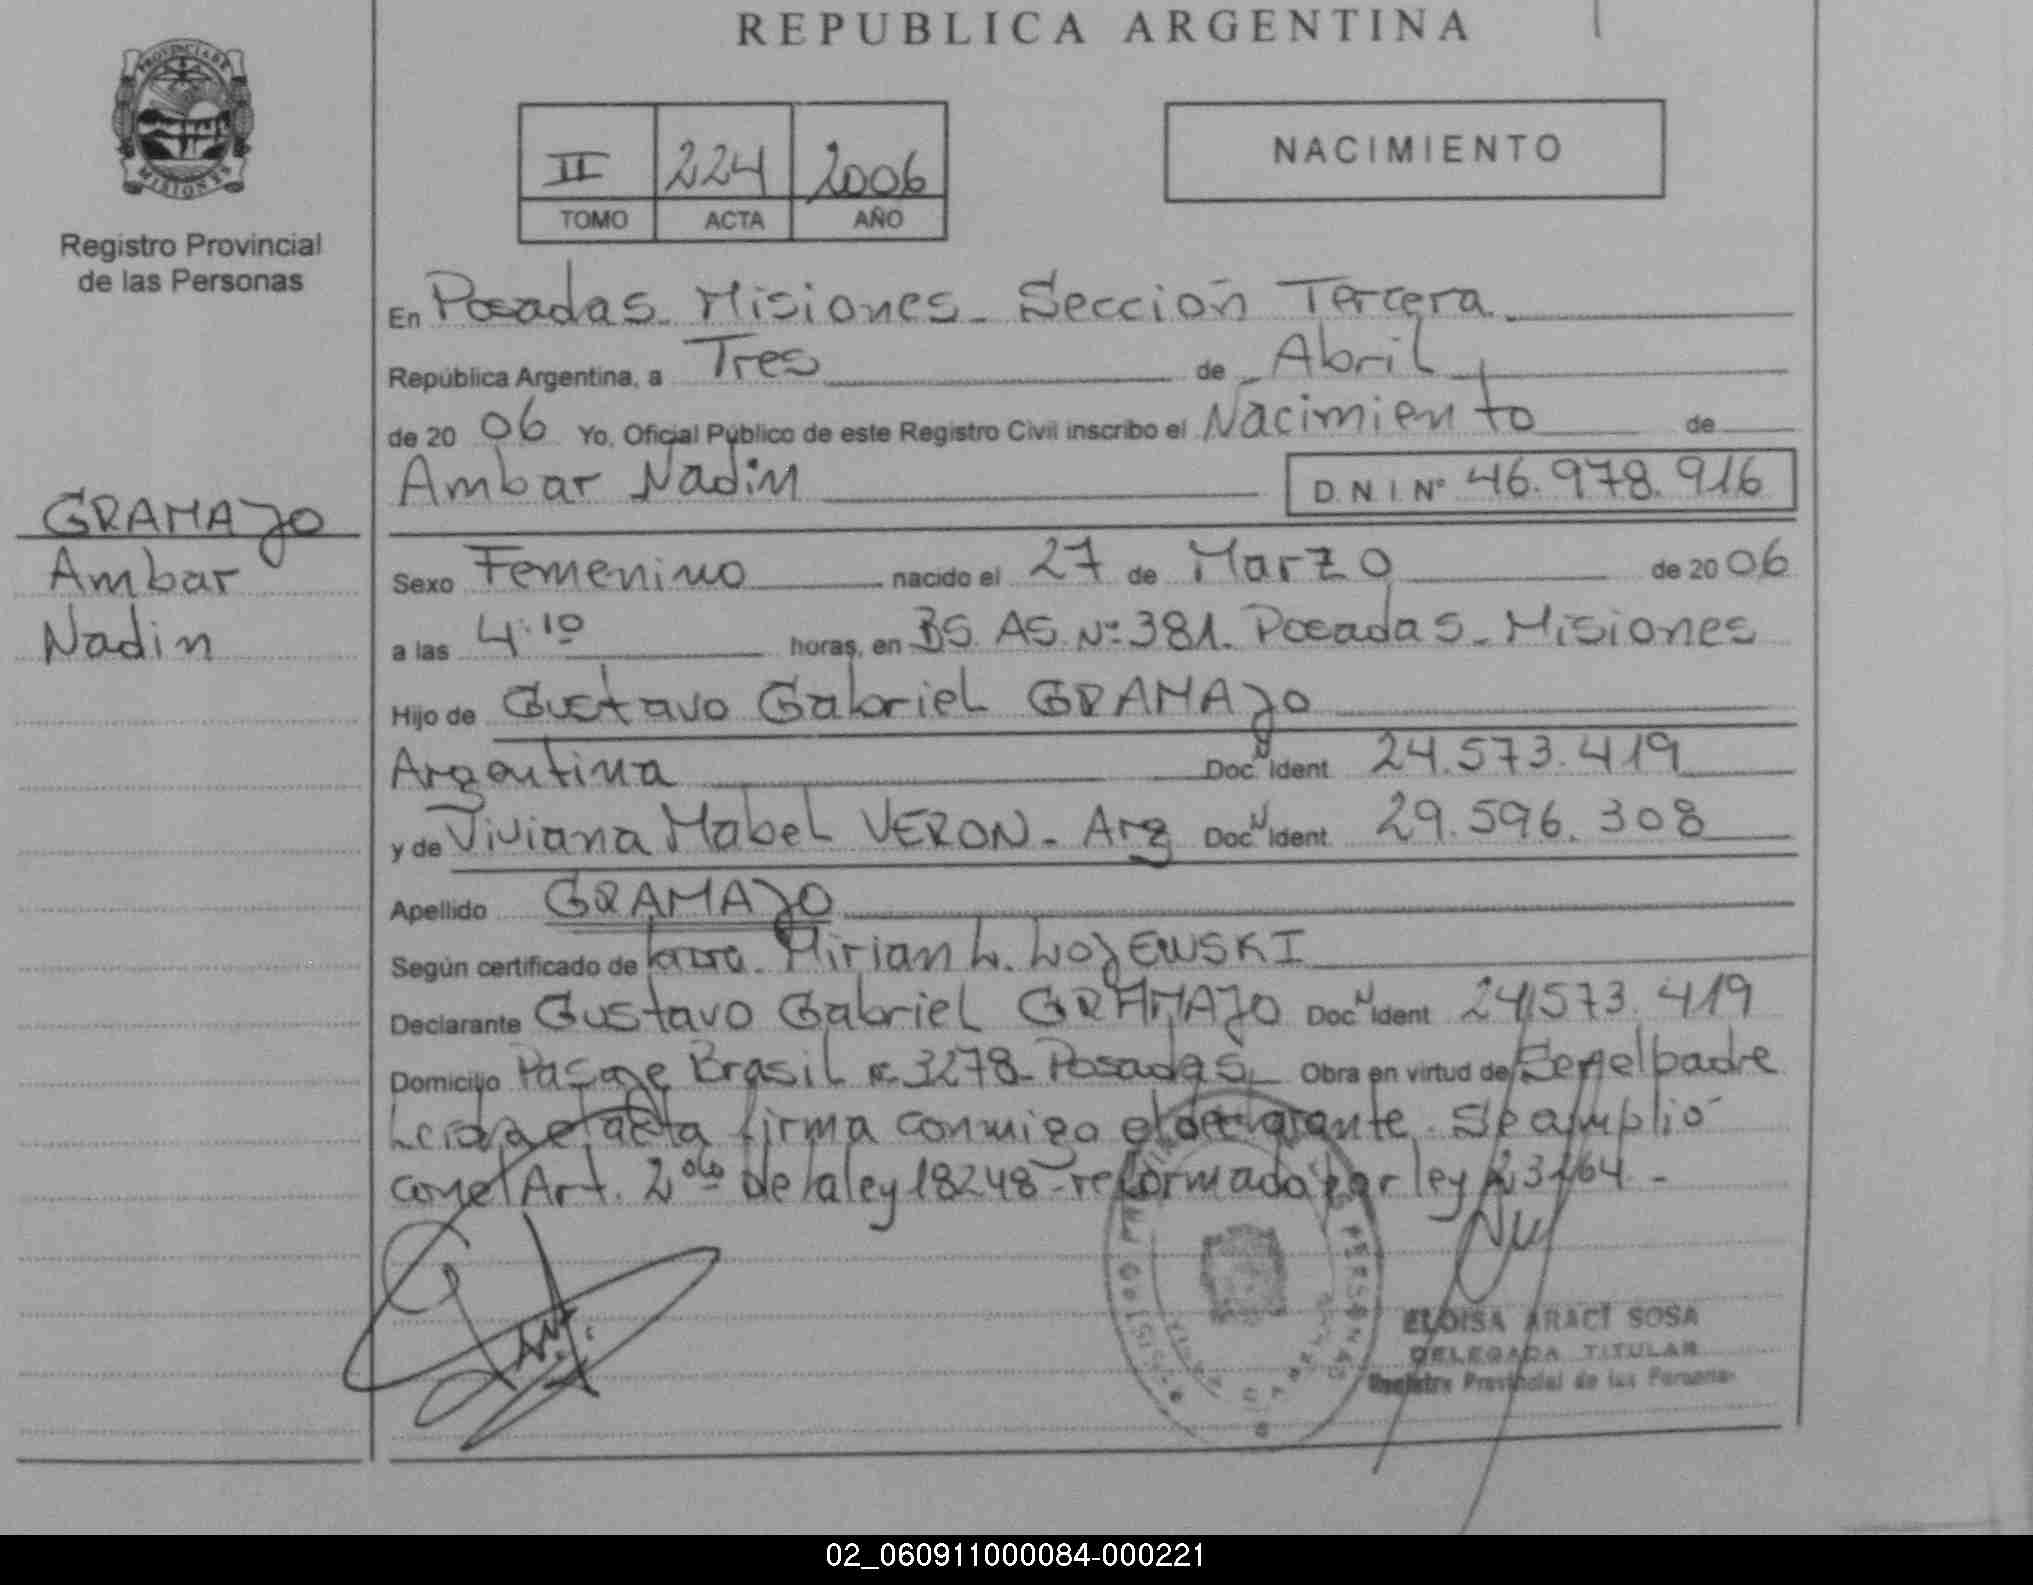 REPUBLICA ARGENTINA
PROVINCIA DE MISIONES
Registro Provincial
de las Personas
II 224 2006
TOMO ACTA AÑO
NACIMIENTO
En Posadas - Misiones - Sección Tercera
República Argentina, a Tres de Abril
de 20 06 Yo, Oficial Público de este Registro Civil inscribo el Nacimiento de
Ambar Nadin D.N.I Nº 46.978.916
GRAMAJO
Ambar
Nadin
Sexo Femenino nacido el 27 de Marzo de 20 06
a las 4:10 horas, en BS. AS. Nº 381. Posadas - Misiones
Hijo de Gustavo Gabriel GRAMAJO
Argentina Doc N Ident 24.573.419
y de Viviana Mabel VERON - Arg Doc N Ident 29.596.308
Apellido GRAMAJO
Según certificado de Mirian L. LOJEWSKI
Declarante Gustavo Gabriel GRAMAJO Doc N Ident 24.573.419
Domicilio Pasaje Brasil 3278 - Posadas - Obra en virtud de Ser el padre
Leida el acta firma conmigo el declarante. Se amplió
con el Art. 2do de la ley 18248 - reformado por ley 23264 -
ELOISA ARACI SOSA
DELEGADA TITULAR
Registro Provincial de las Personas
02_060911000084-000221